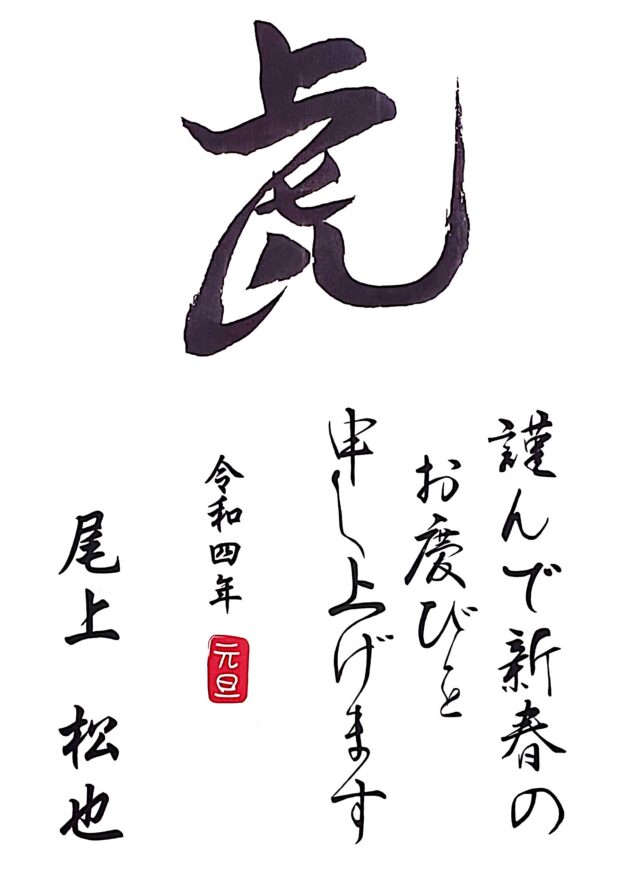 虎
謹んで新春の
お慶びを
申し上げます
令和四年
元旦
尾上 松也